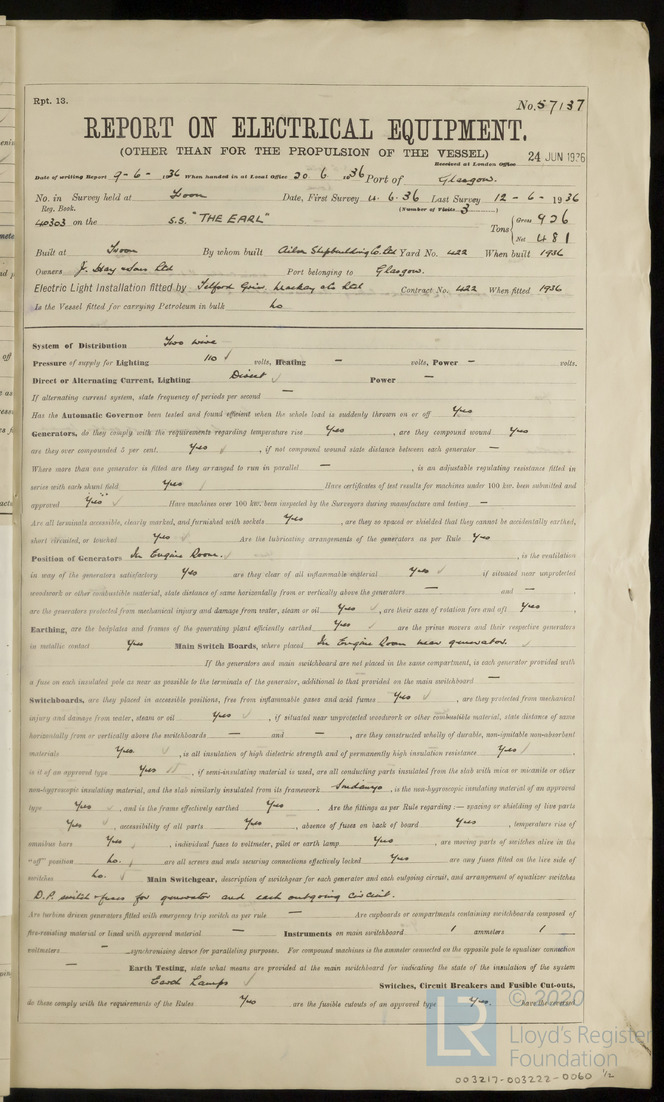 Rpt. 13.
No. 57137
REPORT ON ELECTRICAL EQUIPMENT.
(OTHER THAN FOR THE PROPULSION OF THE VESSEL)
Received at London Office 24 JUN 1936
Date of writing Report 9-6- 1936 When handed in at Local Office 20 6 1936 Port of Glasgow.
No. in Survey held at Troon Date, First Survey 4.6.36 Last Survey 12-6-1936
Reg. Book. (Number of Visits 3)
40303 on the S.S. "THE EARL" Tons { Gross 926
Net 481
Built at Troon By whom built Ailsa Shipbuilding Co. Ltd Yard No. 422 When built 1936
Owners J. Hay & Sons Ltd Port belonging to Glasgow.
Electric Light Installation fitted by Telford Grier Mackay & Co Ltd Contract No. 422 When fitted 1936
Is the Vessel fitted for carrying Petroleum in bulk No
System of Distribution Two wire
Pressure of supply for Lighting 110 volts, Heating - volts, Power - volts.
Direct or Alternating Current, Lighting Direct Power -
If alternating current system, state frequency of periods per second -
Has the Automatic Governor been tested and found efficient when the whole load is suddenly thrown on or off Yes
Generators, do they comply with the requirements regarding temperature rise Yes, are they compound wound Yes
are they over compounded 5 per cent. Yes, if not compound wound state distance between each generator -
Where more than one generator is fitted are they arranged to run in parallel -, is an adjustable regulating resistance fitted in
series with each shunt field Yes Have certificates of test results for machines under 100 kw. been submitted and
approved Yes Have machines over 100 kw. been inspected by the Surveyors during manufacture and testing -
Are all terminals accessible, clearly marked, and furnished with sockets Yes, are they so spaced or shielded that they cannot be accidentally earthed,
short circuited, or touched Yes Are the lubricating arrangements of the generators as per Rule Yes
Position of Generators In Engine Room., is the ventilation
in way of the generators satisfactory Yes are they clear of all inflammable material Yes if situated near unprotected
woodwork or other combustible material, state distance of same horizontally from or vertically above the generators - and -,
are the generators protected from mechanical injury and damage from water, steam or oil Yes, are their axes of rotation fore and aft Yes
Earthing, are the bedplates and frames of the generating plant efficiently earthed Yes are the prime movers and their respective generators
in metallic contact Yes Main Switch Boards, where placed In Engine Room near generator.
If the generators and main switchboard are not placed in the same compartment, is each generator provided with
a fuse on each insulated pole as near as possible to the terminals of the generator, additional to that provided on the main switchboard -
Switchboards, are they placed in accessible positions, free from inflammable gases and acid fumes Yes, are they protected from mechanical
injury and damage from water, steam or oil Yes, if situated near unprotected woodwork or other combustible material, state distance of same
horizontally from or vertically above the switchboards - and -, are they constructed wholly of durable, non-ignitable non-absorbent
materials Yes, is all insulation of high dielectric strength and of permanently high insulation resistance Yes
is it of an approved type Yes, if semi-insulating material is used, are all conducting parts insulated from the slab with mica or micanite or other
non-hygroscopic insulating material, and the slab similarly insulated from its framework Sindanyo, is the non-hygroscopic insulating material of an approved
type Yes, and is the frame effectively earthed Yes. Are the fittings as per Rule regarding :— spacing or shielding of live parts
Yes, accessibility of all parts Yes, absence of fuses on back of board Yes, temperature rise of
omnibus bars Yes, individual fuses to voltmeter, pilot or earth lamp Yes, are moving parts of switches alive in the
"off" position No. are all screws and nuts securing connections effectively locked Yes are any fuses fitted on the live side of
switches No. Main Switchgear, description of switchgear for each generator and each outgoing circuit, and arrangement of equalizer switches
D.P. switch & fuses for generator and each outgoing circuit.
Are turbine driven generators fitted with emergency trip switch as per rule - Are cupboards or compartments containing switchboards composed of
fire-resisting material or lined with approved material - Instruments on main switchboard 1 ammeters 1
voltmeters - synchronising device for paralleling purposes. For compound machines is the ammeter connected on the opposite pole to equalizer connection
- Earth Testing, state what means are provided at the main switchboard for indicating the state of the insulation of the system
Earth Lamps Switches, Circuit Breakers and Fusible Cut-outs,
do these comply with the requirements of the Rules Yes are the fusible cutouts of an approved type Yes. have the reversed
© 2020
LR
Lloyd's Register
Foundation
003217-003222-0060 1/2